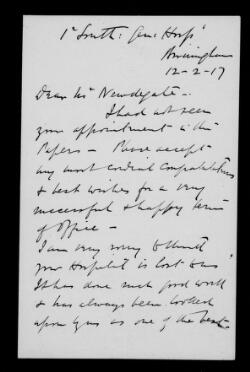 1st South: Gen: Hosp'
Birmingham
12-2-17
Dear Mr Newdegate -
I had not seen
your appointment in the
Papers - Please accept
my most cordial Congratulations
& best wishes for a very
successful & happy term
of Office -
I am very sorry to think
your Hospital is lost to us
It has done such good work
& has always been looked
upon by us as one of the best